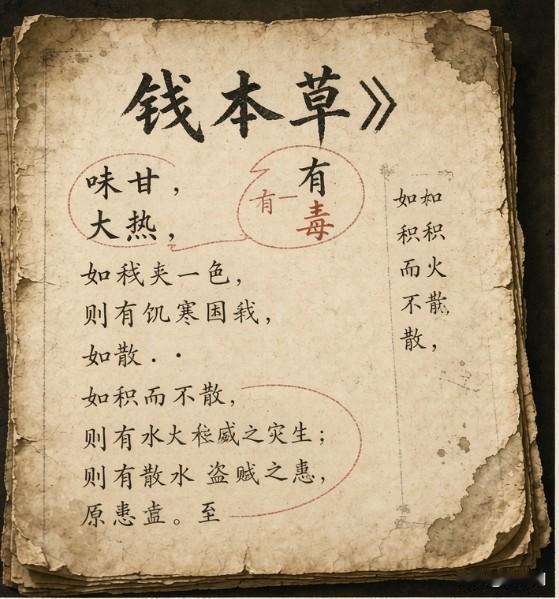 钱本草》
味甘，
大热，
有
有一毒
如我夹一色，
则有饥寒国我，
如散··
如积而不散，
则有水大 之灾生；
则有散水 盗贼之患，
原患盍。至
如如
积积
而火
不散，
散，